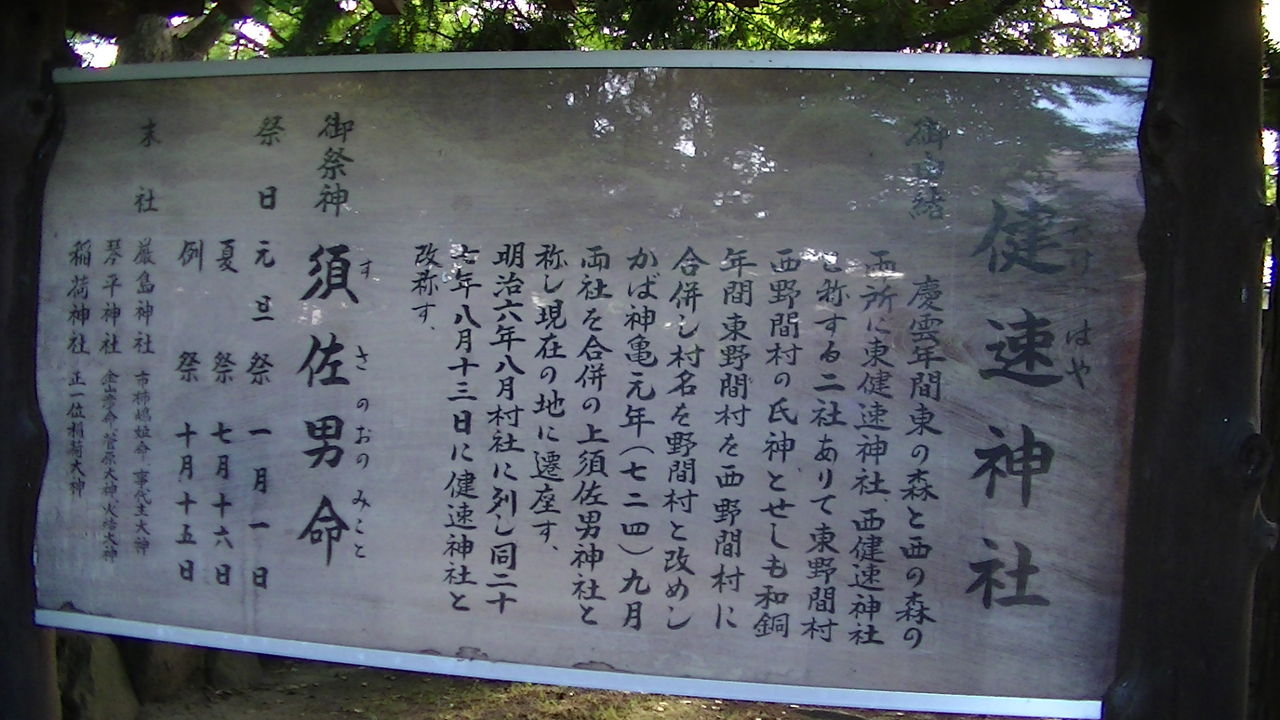 健速神社
たけ はや
御由緒
慶雲年間東の森と西の森の
両所に東健速神社、西健速神社
と称する二社ありて東野間村
西野間村の氏神とせしも和銅
年間東野間村を西野間村に
合併し村名を野間村と改めし
かば神亀元年(七二四)九月
両社を合併の上須佐男神社と
称し現在の地に遷座す、
明治六年八月村社に列し同二十
七年八月十三日に健速神社と
改称す、
御祭神 須佐男命
す さ の お の み こと
祭日 元旦祭 一月一日
夏祭 七月十六日
例祭 十月十五日
末社 厳島神社 市杵嶋姫命、事代主大神
琴平神社 金山彦命、菅原大神、火結大神
稲荷神社 正一位稲荷大神